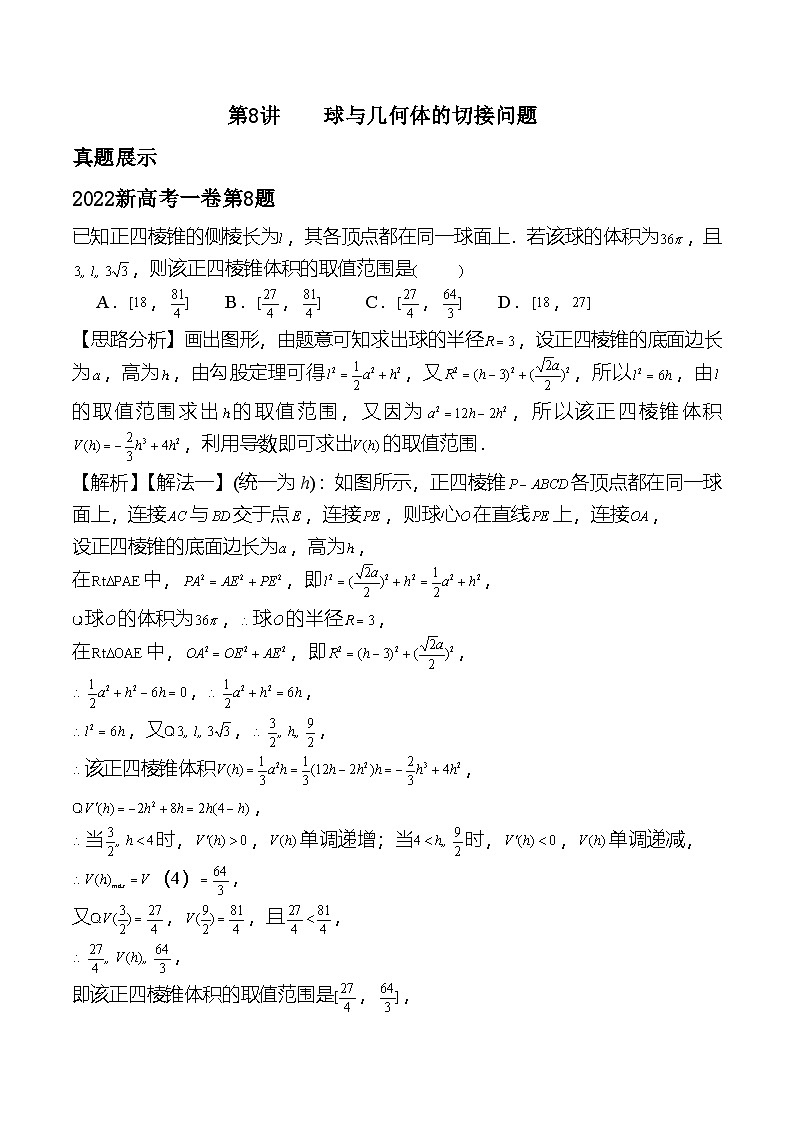 第8讲 球与几何体的切接问题
真题展示
2022新高考一卷第8题
已知正四棱锥的侧棱长为l，其各顶点都在同一球面上．若该球的体积为36π，且
3„ l„ 3√3，则该正四棱锥体积的取值范围是( )
A．[18，81/4] B．[27/4，81/4] C．[27/4，64/3] D．[18，27]
【思路分析】画出图形，由题意可知求出球的半径R = 3，设正四棱锥的底面边长
为a，高为h，由勾股定理可得l² = 1/2 a² + h²，又R² = (h − 3)² + (√2a/2)²，所以l² = 6h，由l
的取值范围求出h的取值范围，又因为a² = 12h − 2h²，所以该正四棱锥体积
V(h) = − 2/3 h³ + 4h²，利用导数即可求出V(h)的取值范围．
【解析】【解法一】(统一为 h)：如图所示，正四棱锥P − ABCD各顶点都在同一球
面上，连接AC与BD交于点E，连接PE，则球心O在直线PE上，连接OA，
设正四棱锥的底面边长为a，高为h，
在Rt∆PAE中，PA² = AE² + PE²，即l² = (√2a/2)² + h² = 1/2 a² + h²，
Q球O的体积为36π，∴球O的半径R = 3，
在Rt∆OAE中，OA² = OE² + AE²，即R² = (h − 3)² + (√2a/2)²，
∴ 1/2 a² + h² − 6h = 0，∴ 1/2 a² + h² = 6h，
∴l² = 6h，又Q3„ l„ 3√3，∴ 3/2 „ h„ 9/2，
∴该正四棱锥体积V(h) = 1/3 a²h = 1/3 (12h − 2h²)h = − 2/3 h³ + 4h²，
QV′(h) = −2h² + 8h = 2h(4 − h)，
∴当3/2 „ h < 4时，V′(h) > 0，V(h)单调递增；当4 < h„ 9/2时，V′(h) < 0，V(h)单调递减，
∴V(h)max = V（4）= 64/3，
又QV(3/2) = 27/4，V(9/2) = 81/4，且27/4 < 81/4，
∴ 27/4 „ V(h)„ 64/3，
即该正四棱锥体积的取值范围是[27/4，64/3]，